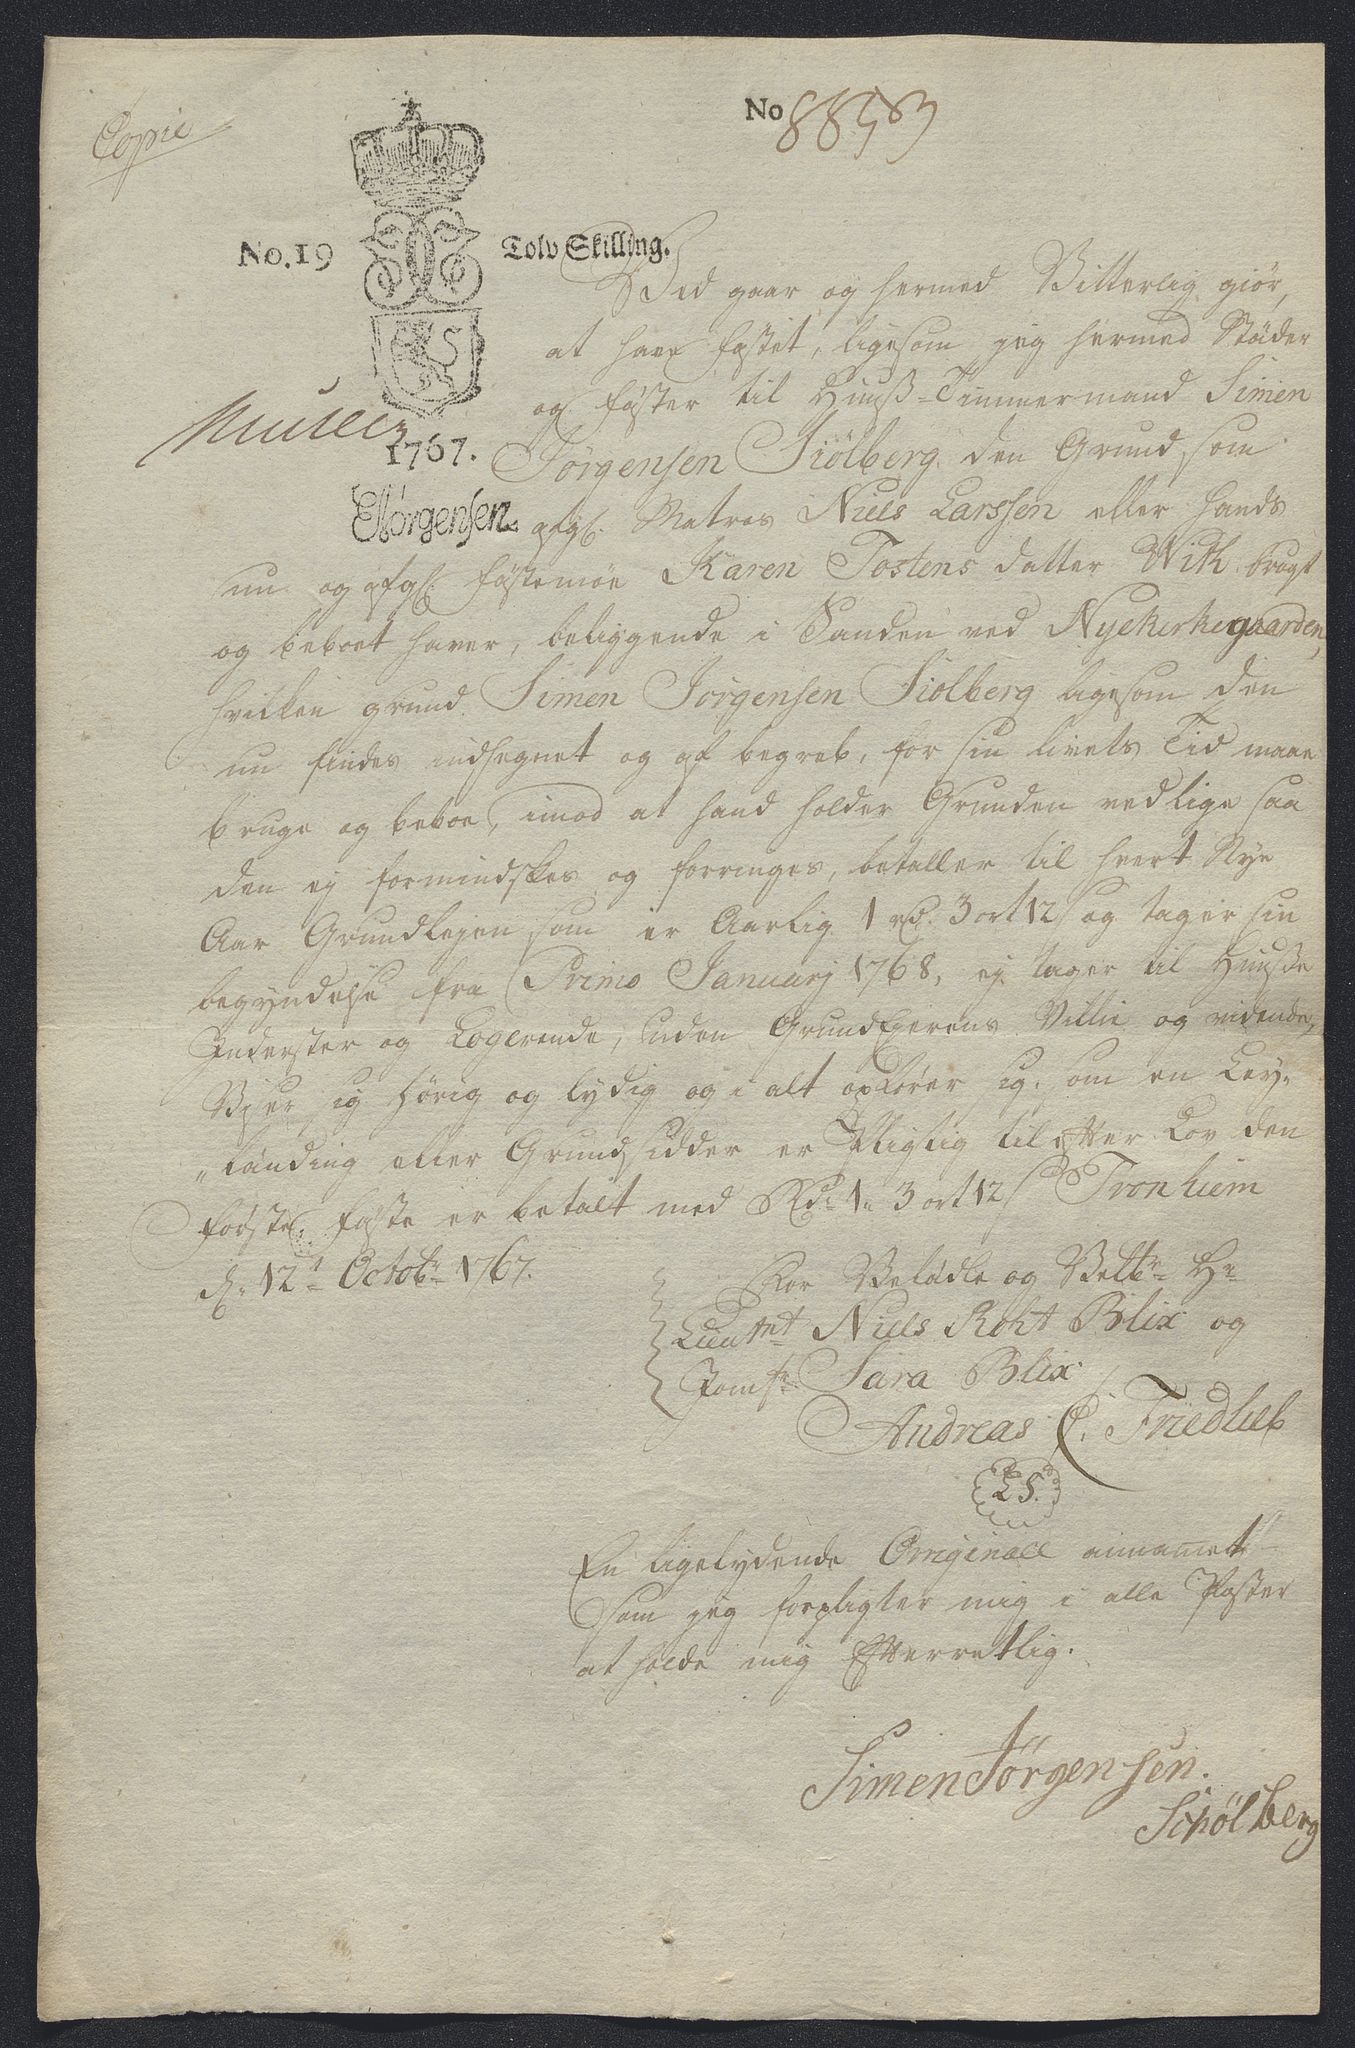 Copie
No 88583
No. 19 Tolv Skilling.
Vid gaar og hermed Vitterlig giør,
at have fæstet, ligesom jeg hermed Stæder
og fæster til Huuß-Timmermand Simen
Müller
1767.
Jørgensen Siølberg den Grund, som
EJørgensen
afg. Matros Niels Larssen eller hands
nu og afg. fæstemøe Karen Tostens datter Wiik brugt
og beboet haver, beliggende i Sanden ved Nyekirkegaarden,
hvilken grund Simen Jørgensen Siølberg ligesom den
nu findes indhegnet og af begreb, for sin livets Tid maae
bruge og beboe, imod at hand holder Grunden ved lige saa
den ej formindskes og forringes, betaller til hvert Nye
Aar Grundlejen som er Aarlig 1 rd. 3 ort 12 s og tager sin
begyndelse fra Primo Januarj 1768, ej tager til Huuße
Inderster og Logerende, uden GrundEjerens Villie og vidende,
Viser sig hørig og lydig og i alt opfører sig, som en Ley-
"lænding eller Grundsidder er Pligtig til efter Lov den
første fæste er betalt med Rd. 1. 3 ort 12 s Tronhiem
d. 12t Octobr 1767.
For Velædle og Velbr. Hr
Lieutnt Niels Roht Blix og
Jomfr. Sara Blix
Andreas C. Friedlieb
L S.
En ligelydende Original annamet
som jeg forpligter mig i alle Poster
at holde mig Efterretlig.
Simen Jørgensen.
Siøl berg